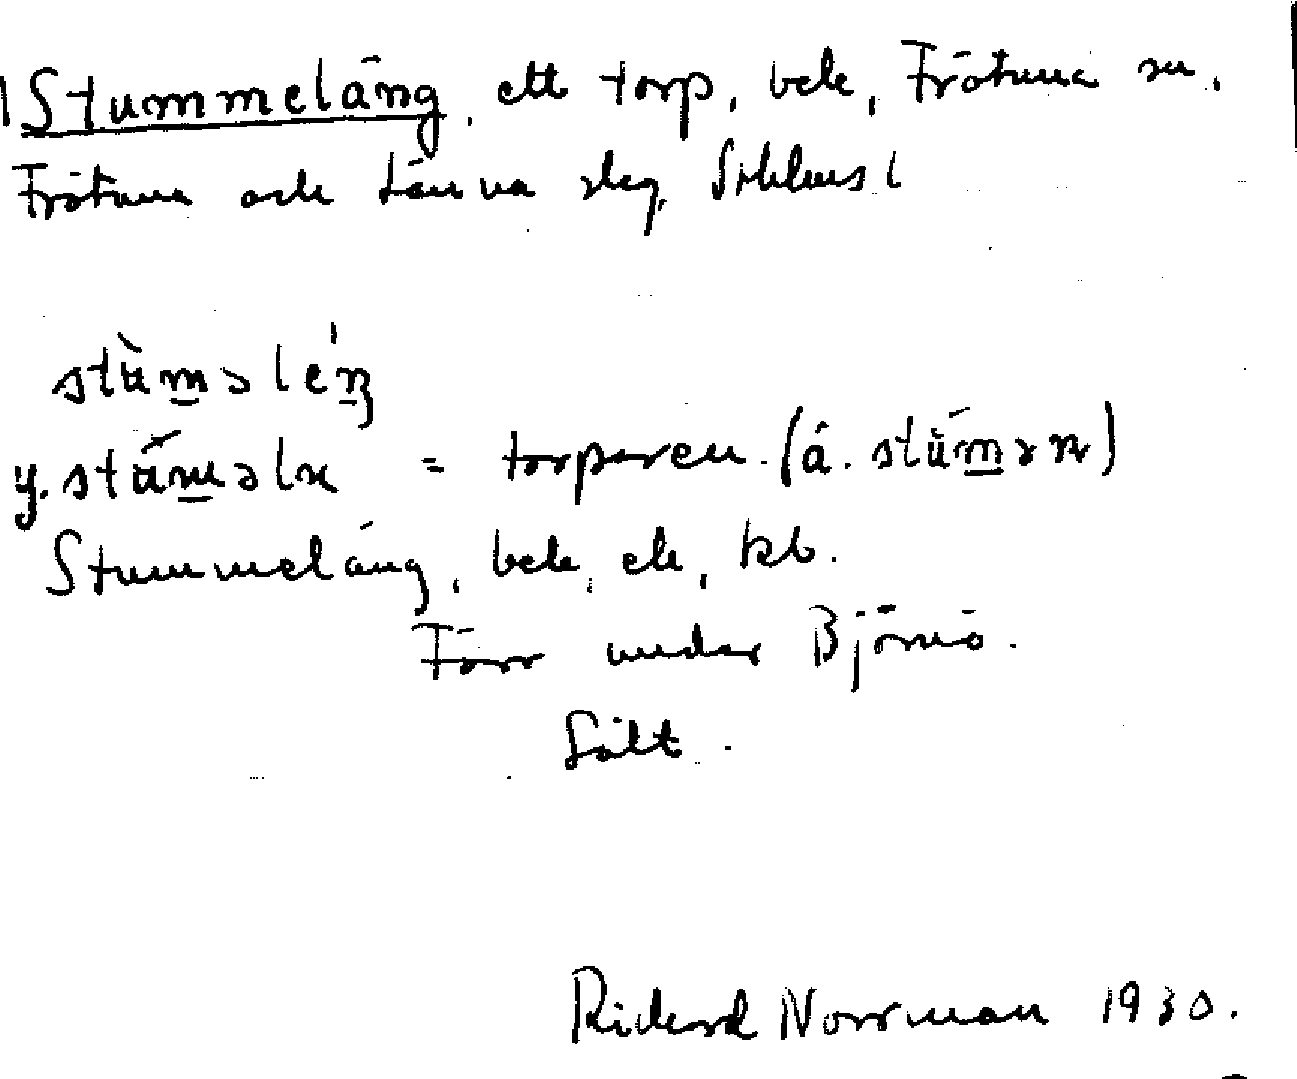 Stummeläng, ett torp, bebe, Frötuna sn,
Frötuna och Länna slag, Sthlms l
stùmǝlέŋ
y. stùmǝln = torparen. (ä. stùmǝn)
Stummeläng, bebe, ek, kb.
Förr under Björnö.
Sält.
Rickard Norrman 1930.